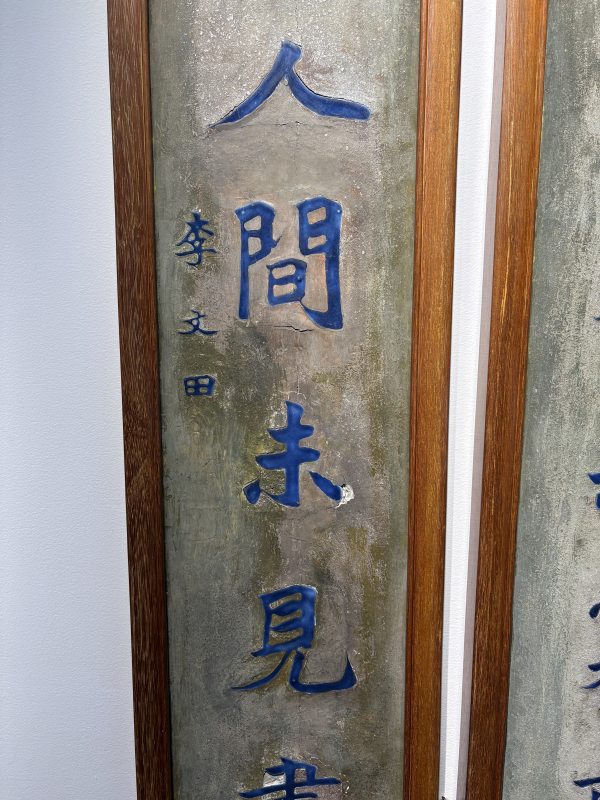 人間未見書
李文田